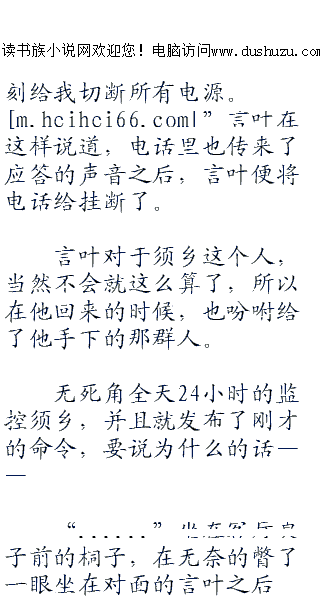 读书族小说网欢迎您！电脑访问www.dushuzu.com
刻给我切断所有电源。
[m.hcihci66.com|”言叶在
这样说道，电话里也传来了
应答的声音之后，言叶便将
电话给挂断了。
言叶对于须乡这个人，
当然不会就这么算了，所以
在他回来的时候，也吩咐给
了他手下的那群人。
无死角全天24小时的监
控须乡，并且就发布了刚才
的命令，要说为什么的话—
—
“......”坐在
子前的桐子，在无奈的瞥了
一眼坐在对面的言叶之后